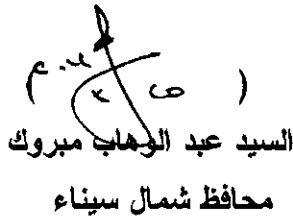 السيد عبد الوهاب مبروك
محافظ شمال سيناء